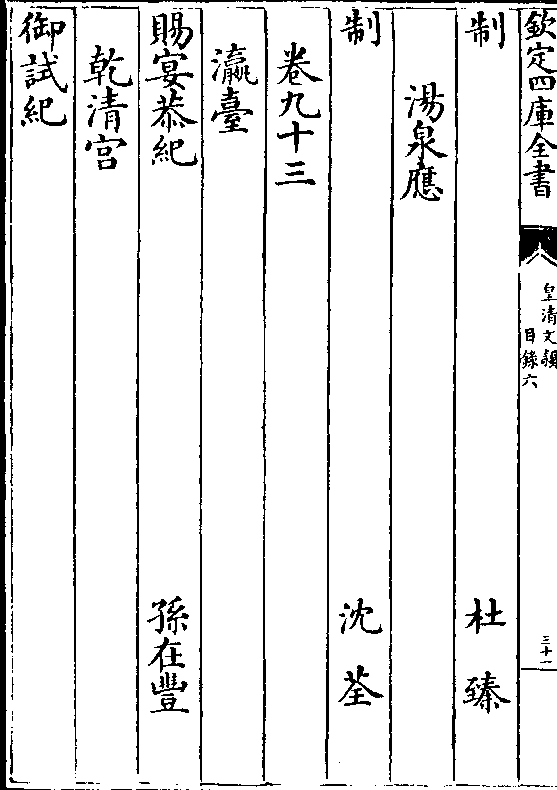 欽定四庫全書
皇清文穎
目錄六
三十一
制 杜臻
湯泉應
制 沈荃
卷九十三
瀛臺
賜宴恭紀 孫在豐
乾清宮
御試紀